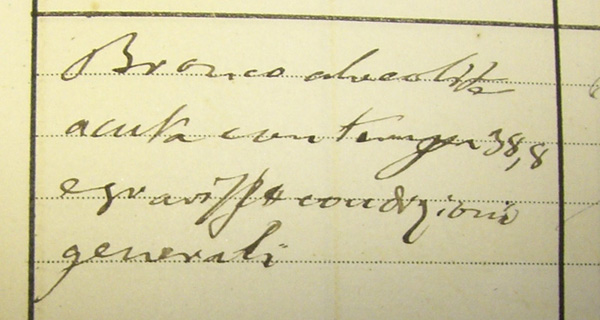 Bronco alveolite
acuta con temp. 38,8
e graviss.e condizioni
generali